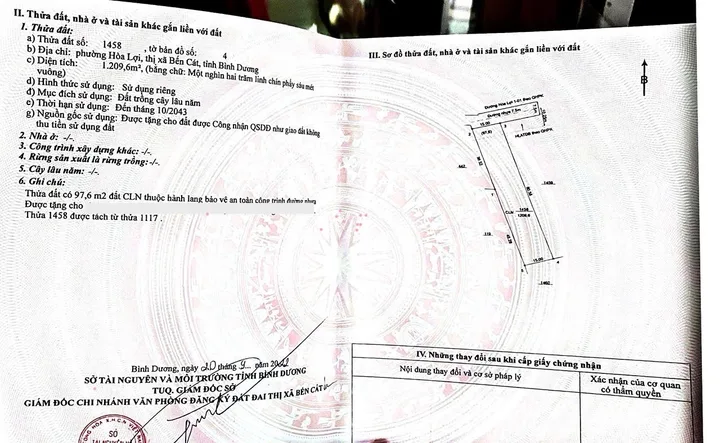 II. Thửa đất, nhà ở và tài sản khác gắn liền với đất
1. Thửa đất:
a) Thửa đất số: 1458 , tờ bản đồ số: 4
b) Địa chỉ: phường Hòa Lợi, thị xã Bến Cát, tỉnh Bình Dương
c) Diện tích: 1.209,6m², (bằng chữ: Một nghìn hai trăm linh chín phẩy sáu mét
vuông)
d) Hình thức sử dụng: Sử dụng riêng
đ) Mục đích sử dụng: Đất trồng cây lâu năm
e) Thời hạn sử dụng: Đến tháng 10/2043
g) Nguồn gốc sử dụng: Được tặng cho đất được Công nhận QSDĐ như giao đất không
thu tiền sử dụng đất
2. Nhà ở: -/-.
3. Công trình xây dựng khác: -/-.
4. Rừng sản xuất là rừng trồng: -/-.
5. Cây lâu năm: -/-.
6. Ghi chú:
Thửa đất có 97,6 m2 đất CLN thuộc hành lang bảo vệ an toàn công trình đường nhựa
Được tặng cho
Thửa 1458 được tách từ thửa 1117 .
Bình Dương, ngày 20 tháng 9 năm 2022
SỞ TÀI NGUYÊN VÀ MÔI TRƯỜNG TỈNH BÌNH DƯƠNG
TUQ. GIÁM ĐỐC SỞ
GIÁM ĐỐC CHI NHÁNH VĂN PHÒNG ĐĂNG KÝ ĐẤT ĐAI THỊ XÃ BẾN CÁT
SỞ
III. Sơ đồ thửa đất, nhà ở và tài sản khác gắn liền với đất
B
Đường nhựa 7.5m
15.00
(97,6)
HLATĐB theo QHPK
CLN
1458
1209.6
15.00
IV. Những thay đổi sau khi cấp giấy chứng nhận
Nội dung thay đổi và cơ sở pháp lý
Xác nhận của cơ quan
có thẩm quyền